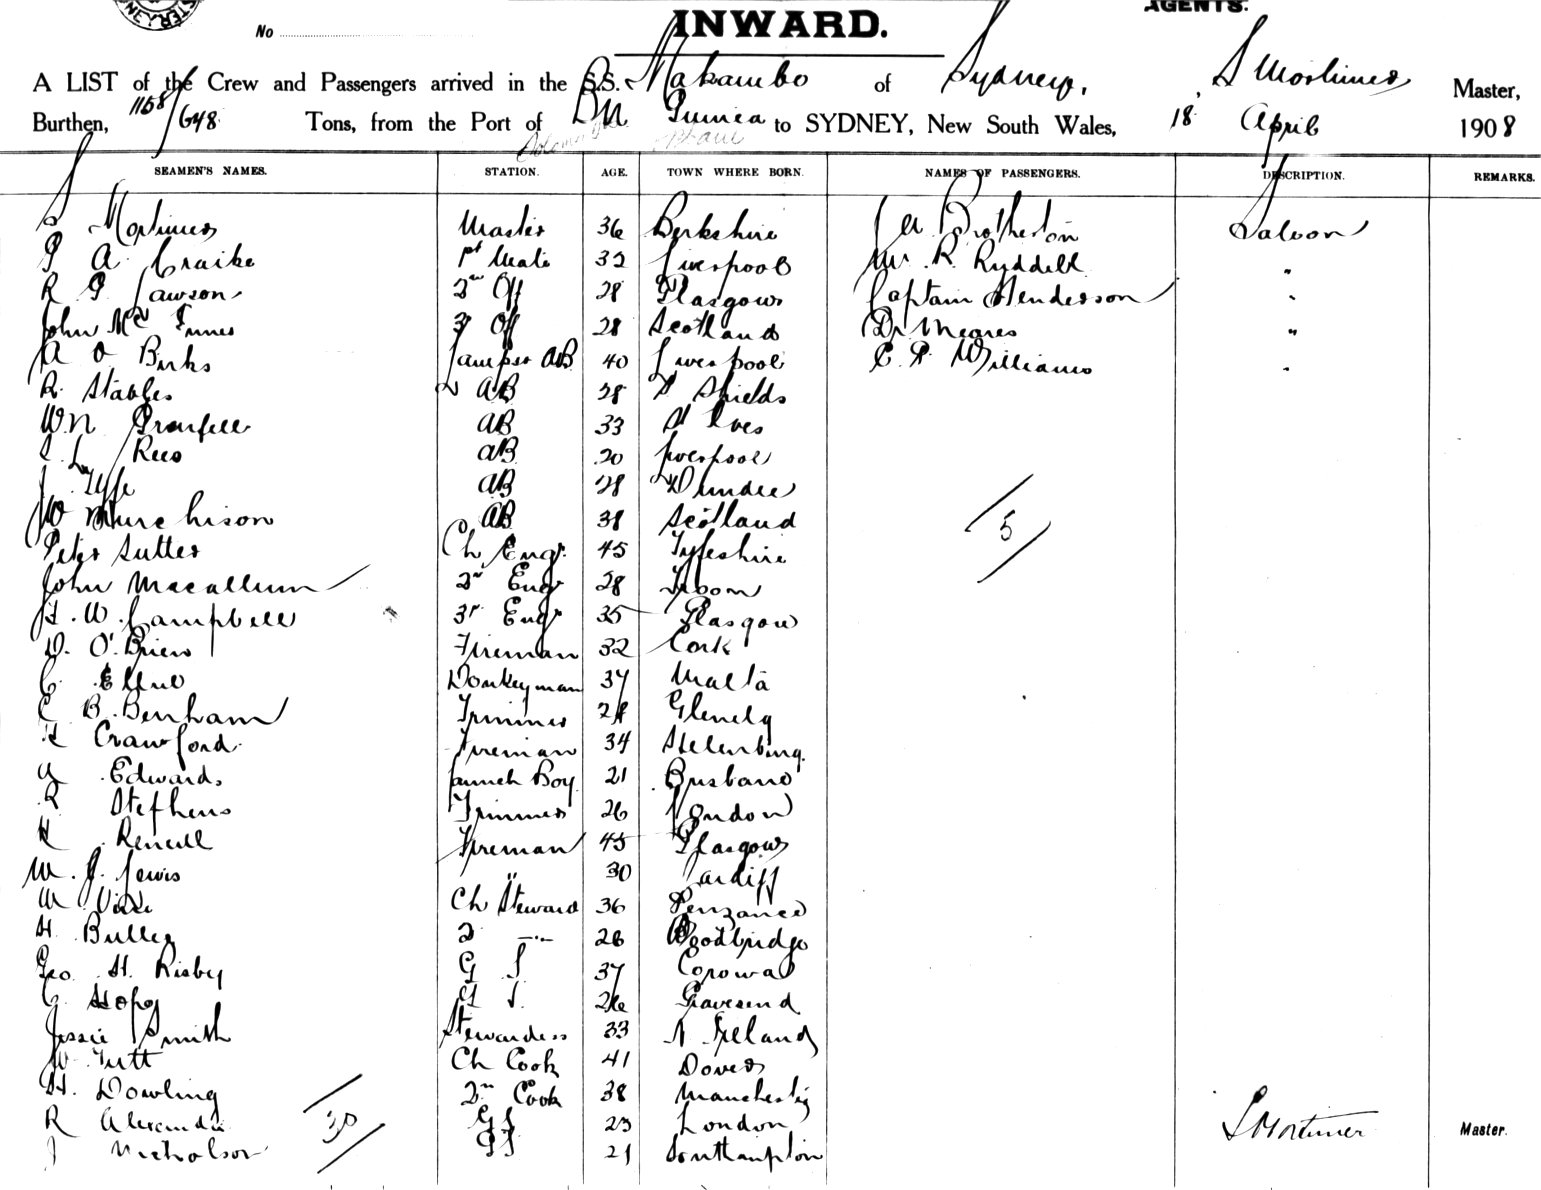 AGENTS.
No
INWARD.
A LIST of the Crew and Passengers arrived in the S.S. Makambo of Sydney, S Mortimer Master,
Burthen, 1158/648 Tons, from the Port of Guinea to SYDNEY, New South Wales, 18 April 1908
SEAMEN'S NAMES. STATION. AGE. TOWN WHERE BORN. NAMES OF PASSENGERS. DESCRIPTION. REMARKS.
S Mortimer Master 36 Berkshire Brotherton Saloon
P A Craike 1st Mate 32 Liverpool Mr R. Ryddell "
R G Lawson 2nd Off 28 Glasgow Captain Henderson "
John Mc Innes 3 Off 28 Scotland Dr Meares "
A O Birks AB 40 Liverpool C. P. Williams "
R. Stables AB 28 S Shields
W N Grenfell AB 33 St Ives
Rees AB 20 Liverpool
J Fyfe AB 28 Dundee
W Murchison AB 38 Scotland 5
Peter Sutter Ch Engr. 45 Fyfeshire
John Macallum 2nd Engr 28 Troon
H. W. Campbell 3r Engr 35 Glasgow
D. O'Brien Fireman 32 Cork
C. Ellul Donkeyman 37 Malta
C B. Benham Trimmer Glenelg
H Crawford Fireman 34 Helenburg
A Edwards Launch Boy 21 Brisbane
R Stephens Trimmer 26 London
H Renell Fireman 45 Glasgow
W. J. Lewis " 30 Cardiff
W Ch Steward 36 Penzance
H. Buller 2 —"— 28 Woodbridge
Geo. H. Risby G S 37 Corowa
G. Hope G S. 26 Gravesend
Jessie Smith Stewardess 33 N Ireland
W. Tutt Ch Cook 41 Dover
H. Dowling 2nd Cook 38 Manchester
R Alexander GS 23 London S Mortimer Master.
30
J Nicholson GS 21 Southampton